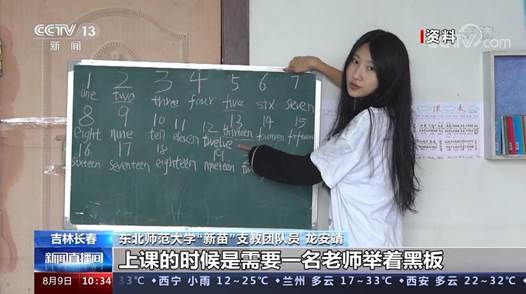 CCTV 13
新闻
资料
CCTV.com
1 2 3 4 5 6 7
one two three four five six seven
8 9 10 11 12 13 14 15
eight nine ten eleven twelve thirteen fourteen fifteen
16 17 18 19
sixteen seventeen eighteen nineteen
吉林长春
东北师范大学“新苗”支教团队员 龙安婧
新闻直播间
上课的时候是需要一名老师举着黑板
8月9日 10:34
33℃ 西宁 小雨 12~25℃ 兰州 多云 17~33℃ 西安 多云 22~32℃